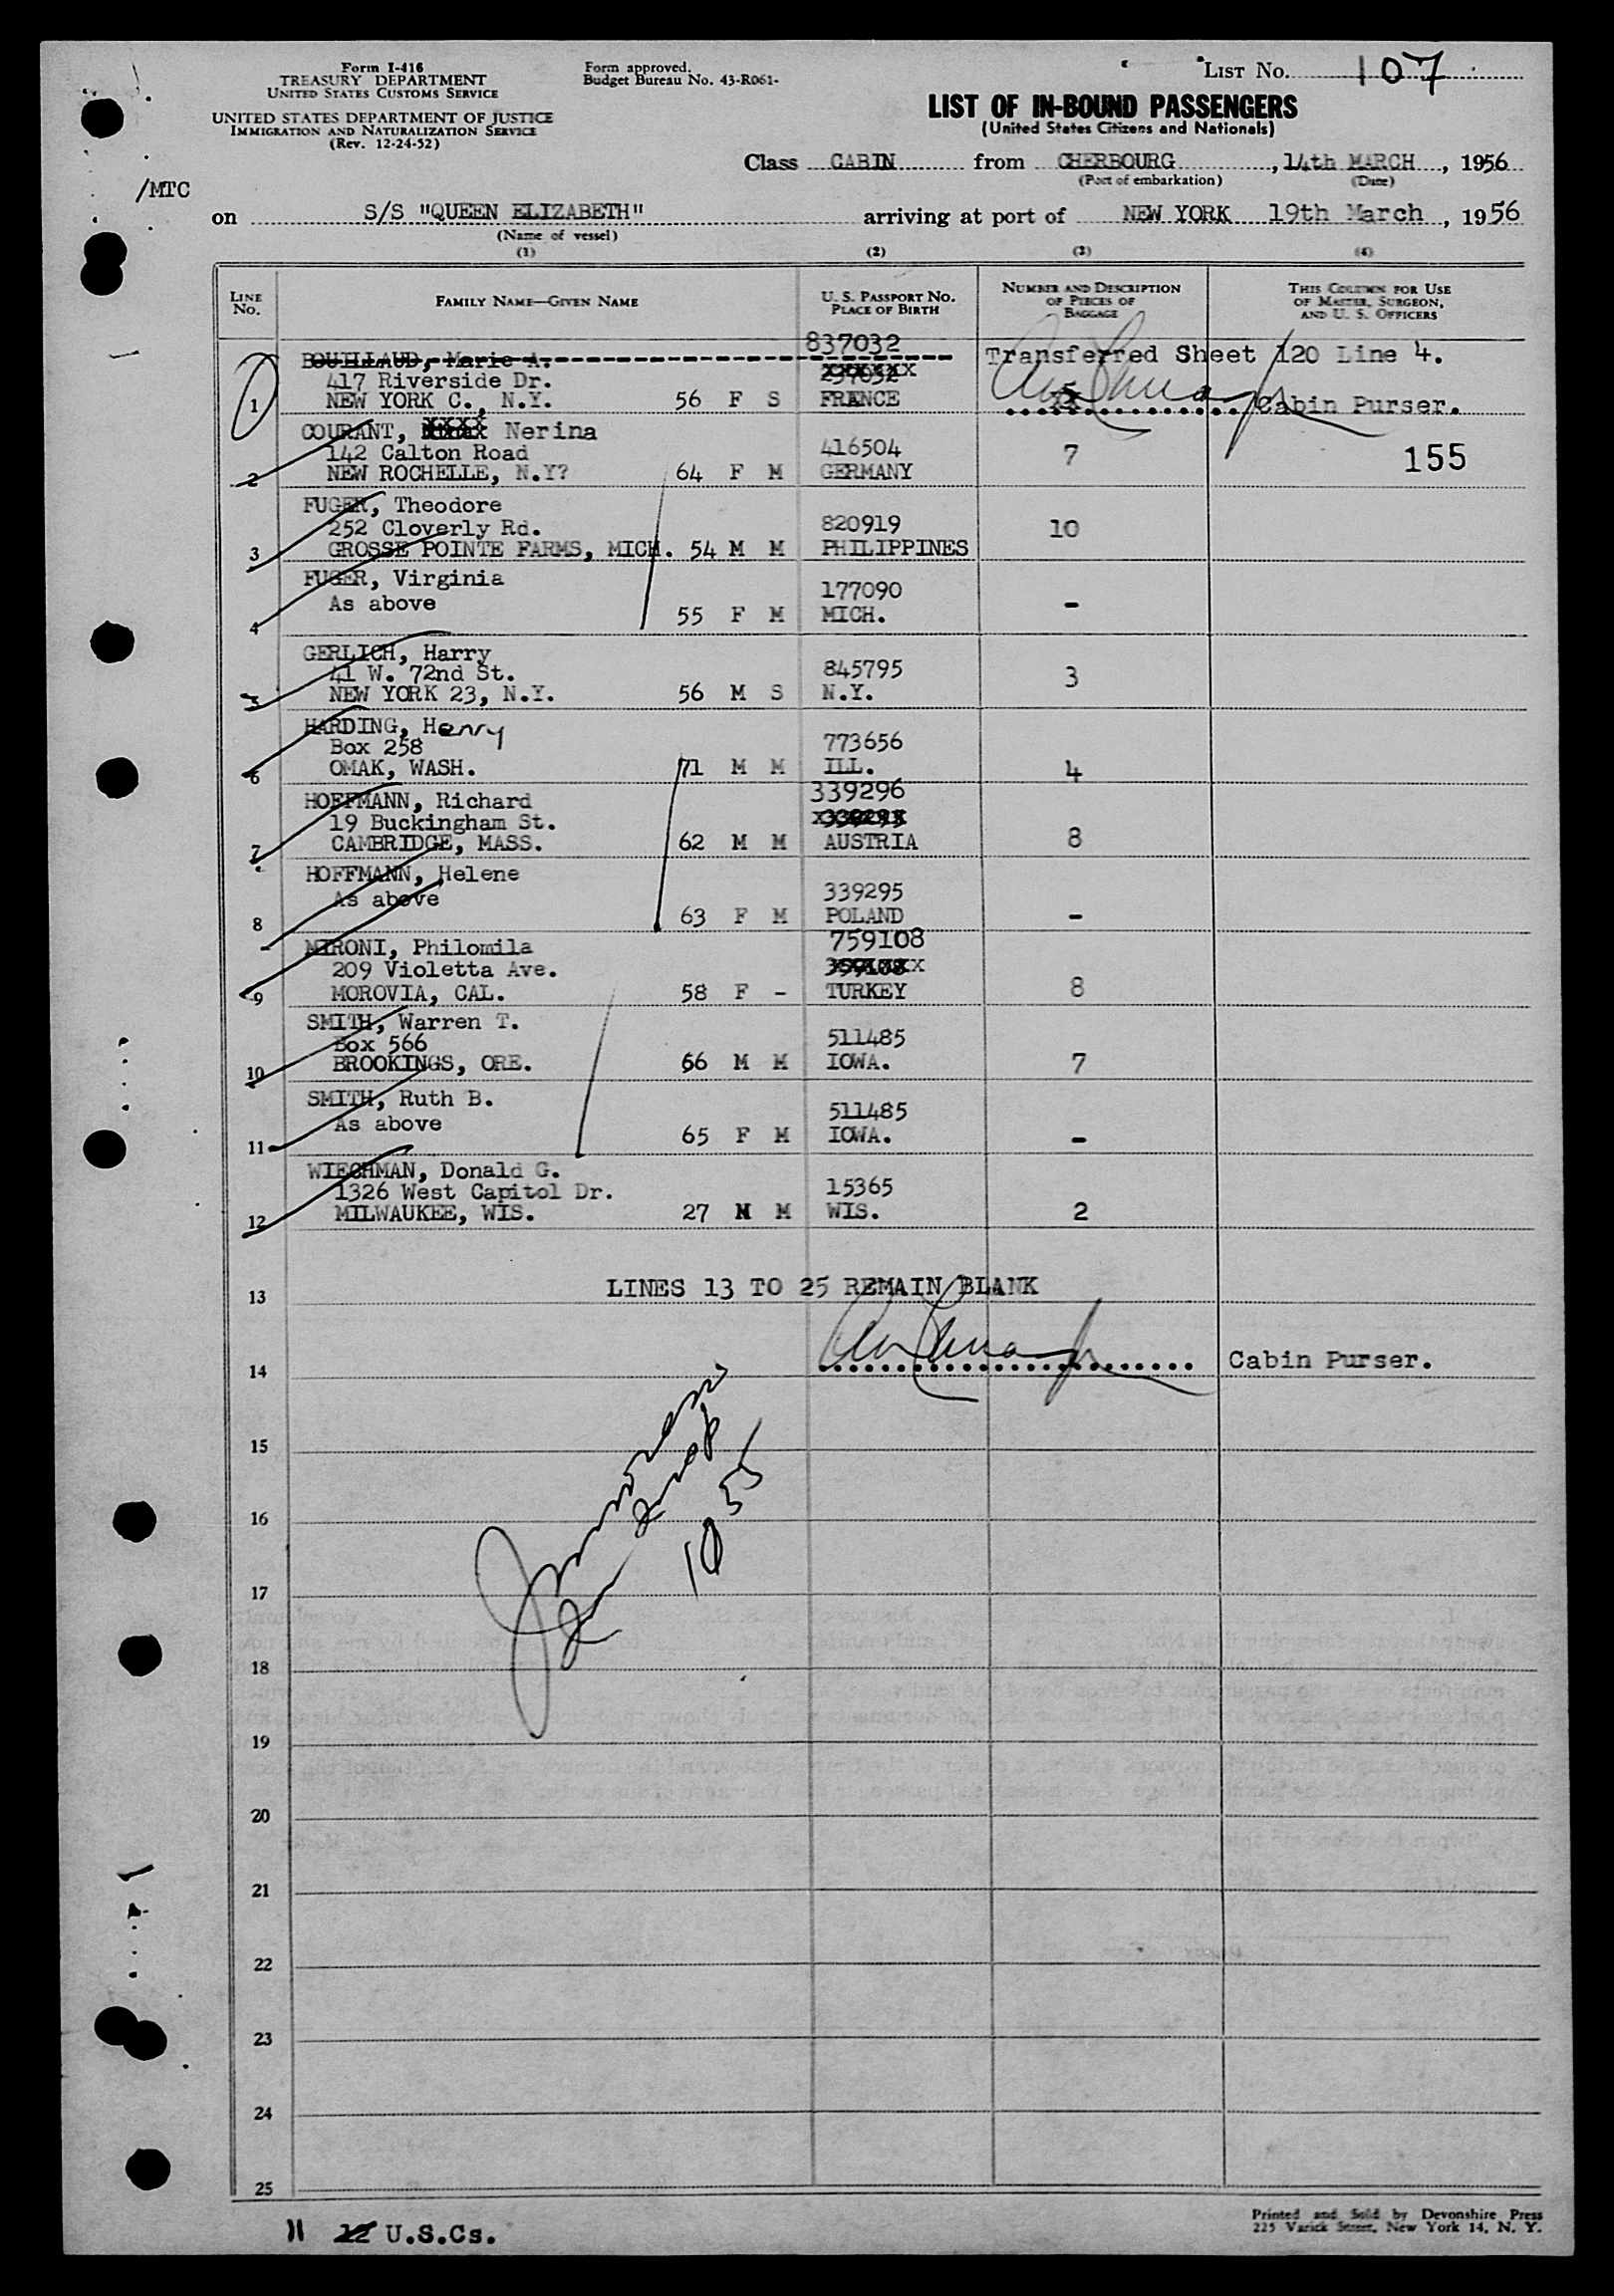 Form I-416
TREASURY DEPARTMENT
UNITED STATES CUSTOMS SERVICE
UNITED STATES DEPARTMENT OF JUSTICE
IMMIGRATION AND NATURALIZATION SERVICE
(Rev. 12-24-52)
Form approved.
Budget Bureau No. 43-R061-
LIST NO. 107
LIST OF IN-BOUND PASSENGERS
(United States Citizens and Nationals)
Class CABIN from CHERBOURG, 14th MARCH, 1956
(Port of embarkation) (Date)
/MTC
on S/S "QUEEN ELIZABETH" arriving at port of NEW YORK 19th March, 1956
(Name of vessel)
(1) (2) (3) (4)
LINE NO. FAMILY NAME—GIVEN NAME U. S. PASSPORT NO. PLACE OF BIRTH NUMBER AND DESCRIPTION OF PIECES OF BAGGAGE THIS COLUMN FOR USE OF MASTER, SURGEON, AND U. S. OFFICERS
837032
BOUILLAUD, Marie A. Transferred Sheet 120 Line 4.
417 Riverside Dr.
1 NEW YORK C., N.Y. 56 F S FRANCE Cabin Purser.
COURANT, Nerina
142 Calton Road 416504 7 155
2 NEW ROCHELLE, N.Y? 64 F M GERMANY
FUGER, Theodore
252 Cloverly Rd. 820919 10
3 GROSSE POINTE FARMS, MICH. 54 M M PHILIPPINES
FUGER, Virginia 177090
As above -
4 55 F M MICH.
GERLICH, Harry
41 W. 72nd St. 845795 3
5 NEW YORK 23, N.Y. 56 M S N.Y.
HARDING, Henry
Box 258 773656
6 OMAK, WASH. 71 M M ILL. 4
339296
HOFFMANN, Richard
19 Buckingham St.
7 CAMBRIDGE, MASS. 62 M M AUSTRIA 8
HOFFMANN, Helene
As above 339295
8 63 F M POLAND -
MIRONI, Philomila 759108
209 Violetta Ave.
9 MOROVIA, CAL. 58 F - TURKEY 8
SMITH, Warren T.
Box 566 511485
10 BROOKINGS, ORE. 66 M M IOWA. 7
SMITH, Ruth B. 511485
As above
11 65 F M IOWA. -
WIECHMAN, Donald G.
1326 West Capitol Dr. 15365
12 MILWAUKEE, WIS. 27 M M WIS. 2
LINES 13 TO 25 REMAIN BLANK
13
14 Cabin Purser.
15
16
17
18
19
20
21
22
23
24
25
11 12 U.S.Cs.
Printed and Sold by Devonshire Press
225 Varick Street, New York 14, N. Y.